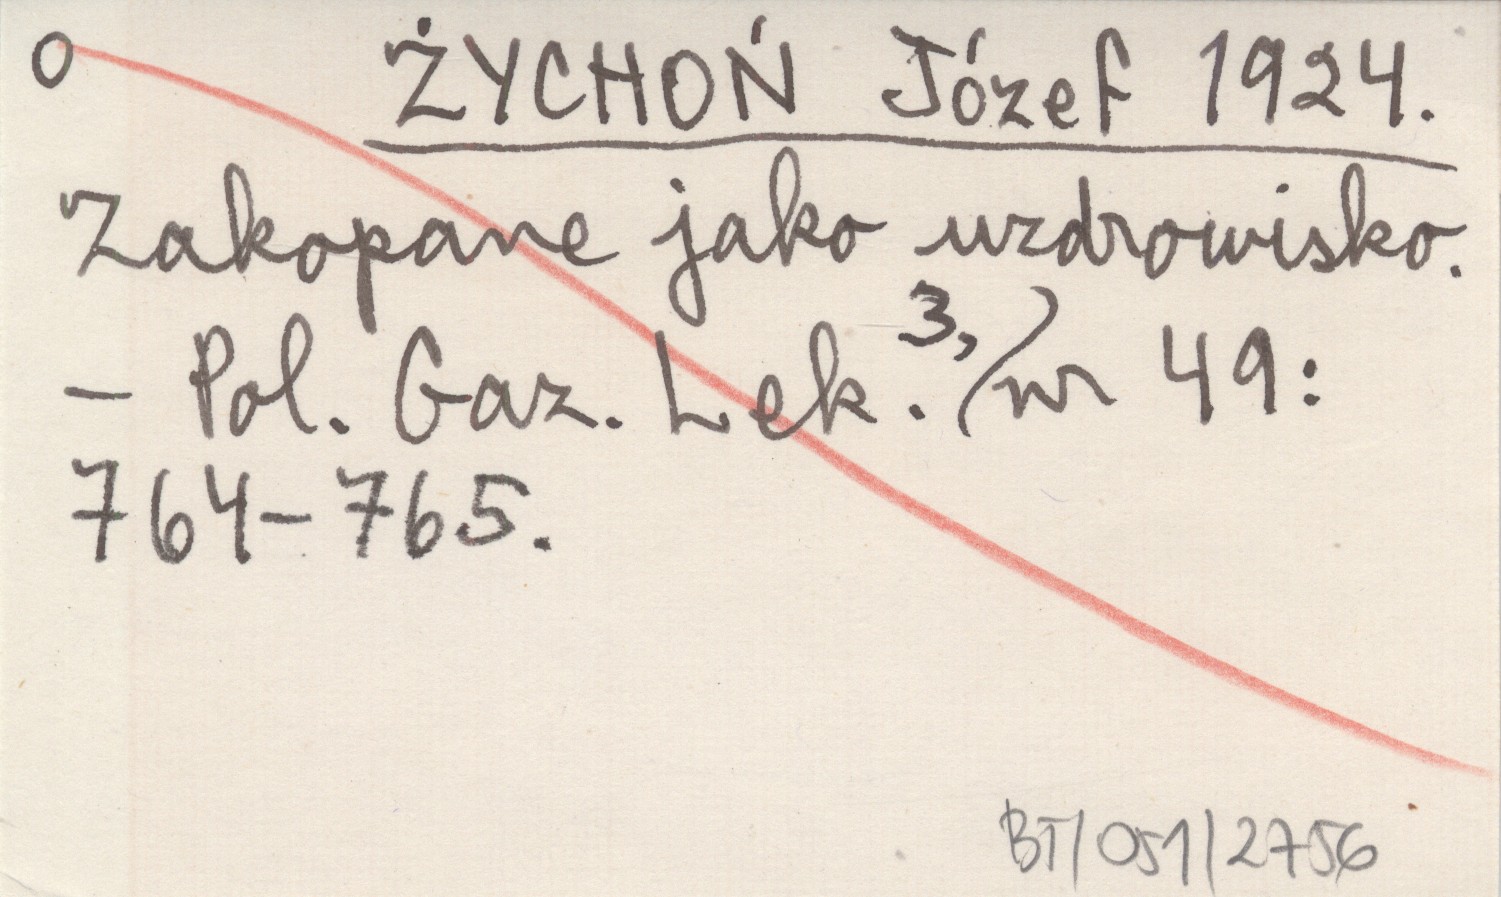 O ŻYCHOŃ Józef 1924.
Zakopane jako uzdrowisko.
- Pol. Gaz. Lek. 3, nr 49:
764-765.
BT/051/2756